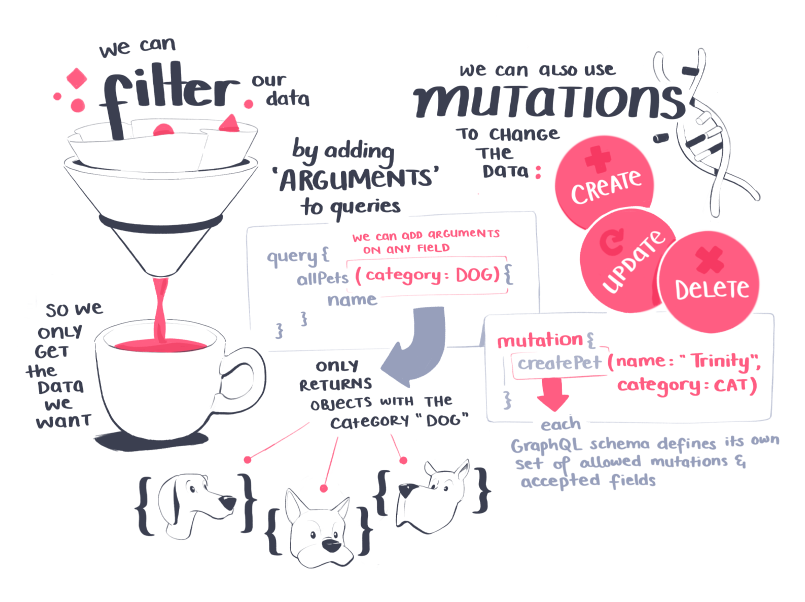 we can
filter our
data
by adding
'ARGUMENTS'
to queries
So we
only
GET
the
DATA
we
WANT
we can add arguments
on any field
query {
allPets (category: DOG) {
name
}
}
only
returns
objects with the
category "DOG"
{ }
{ }
{ }
we can also use
mutations
to change
the
data:
CREATE
UPDATE
DELETE
mutation {
createPet (name: "Trinity",
category: CAT)
}
each
GraphQL schema defines its own
set of allowed mutations &
accepted fields